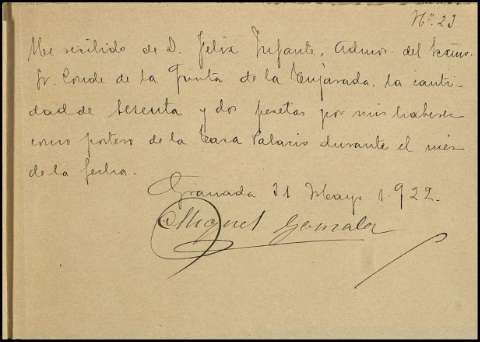 Nº 23
He recibido de D. Felix Infante, Admor. del Excmo.
Sr. Conde de la Quinta de la Enjarada, la canti-
dad de sesenta y dos pesetas por mis haberes
como portero de la Casa Palacio durante el mes
de la fecha.
Granada 31 Mayo 1.922.
Miguel Gonzalez